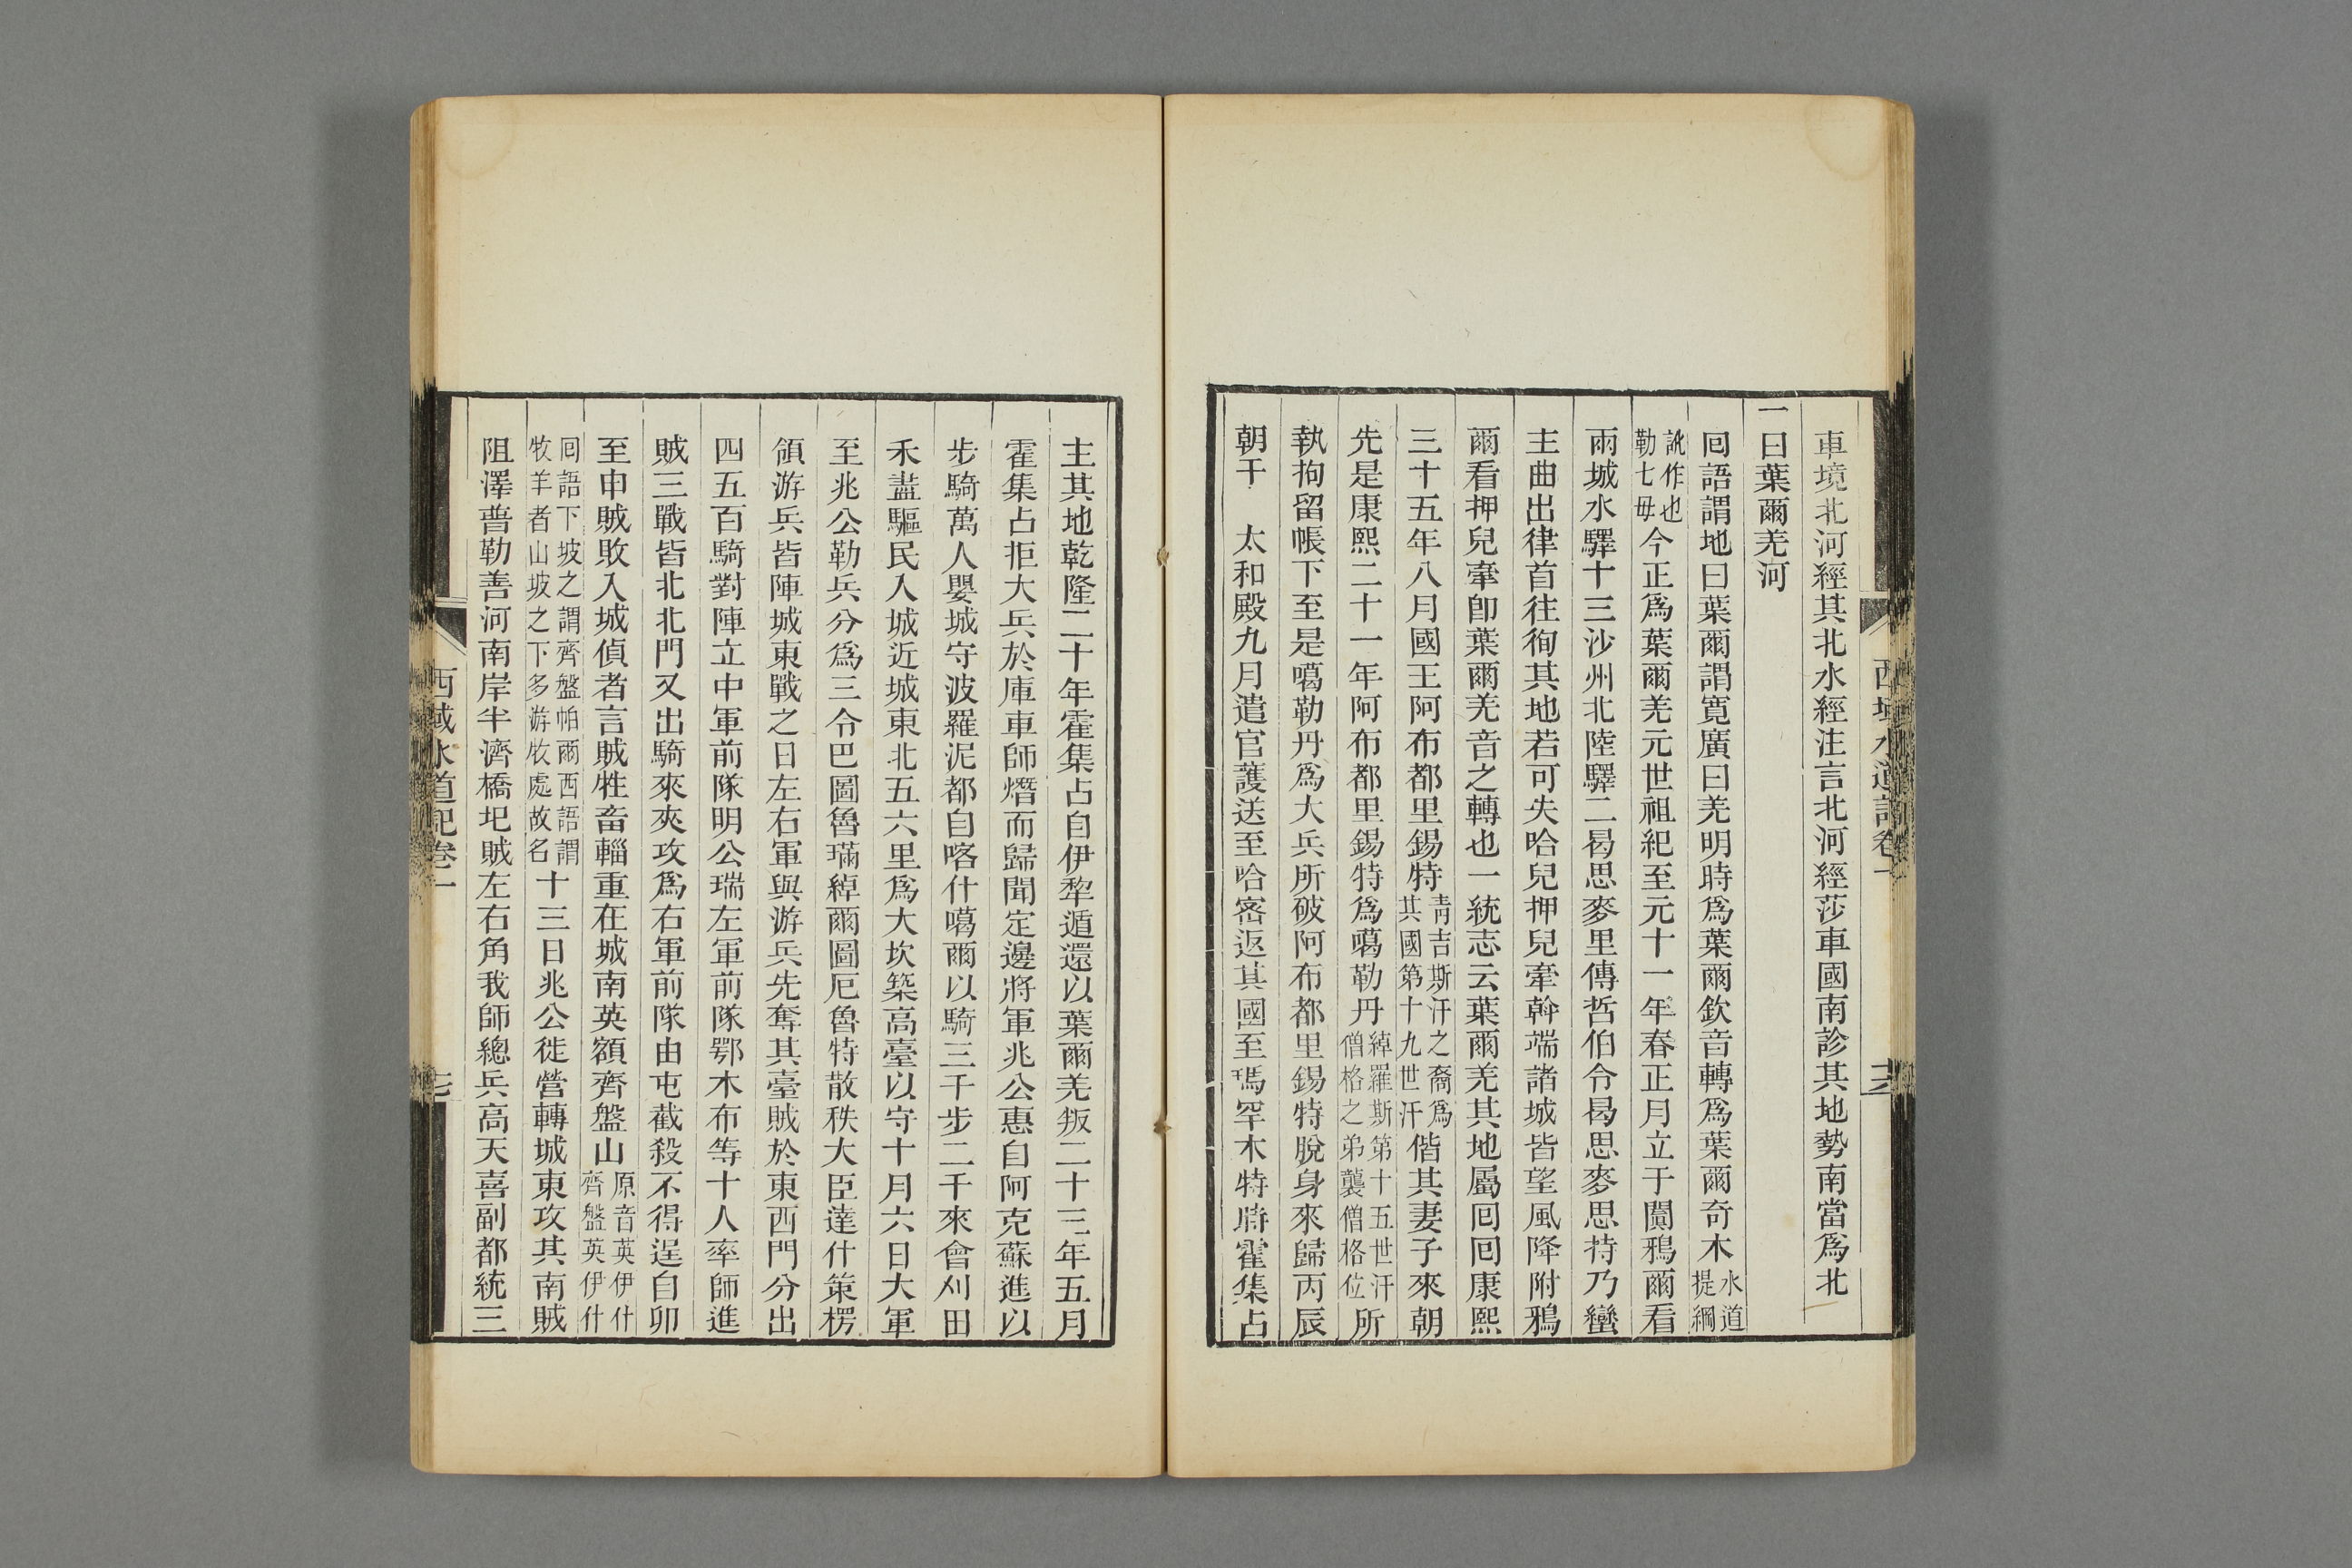 車境北河經其北水經注言北河經莎車國南診其地勢南當爲北
一曰葉爾羌河
囘語謂地曰葉爾謂寬廣曰羌明時爲葉爾欽音轉爲葉爾奇木水道提綱
訛作也勒七毋今正爲葉爾羌元世祖紀至元十一年春正月立于闐鴉爾看
兩城水驛十三沙州北陸驛二曷思麥里傳哲伯令曷思麥思持乃蠻
主曲出律首往徇其地若可失哈兒押兒牽斡端諸城皆望風降附鴉
爾看押兒牽卽葉爾羌音之轉也一統志云葉爾羌其地屬囘囘康熙
三十五年八月國王阿布都里錫特青吉斯汗之裔爲其國第十九世汗偕其妻子來朝
先是康熙二十一年阿布都里錫特爲噶勒丹綽羅斯第十五世汗僧格之弟襲僧格位所
執拘留帳下至是噶勒丹爲大兵所破阿布都里錫特脫身來歸丙辰
朝于　太和殿九月遣官護送至哈密返其國至瑪罕木特時霍集占
西域水道記卷一
主其地乾隆二十年霍集占自伊犂遁還以葉爾羌叛二十三年五月
霍集占拒大兵於庫車師熸而歸聞定邊將軍兆公惠自阿克蘇進以
步騎萬人嬰城守波羅泥都自喀什噶爾以騎三千步二千來會刈田
禾盡驅民入城近城東北五六里爲大坎築高臺以守十月六日大軍
至兆公勒兵分爲三令巴圖魯瑞綽爾圖厄魯特散秩大臣達什策楞
領游兵皆陣城東戰之日左右軍與游兵先奪其臺賊於東西門分出
四五百騎對陣立中軍前隊明公瑞左軍前隊鄂木布等十人率師進
賊三戰皆北北門又出騎來夾攻爲右軍前隊由屯截殺不得逞自卯
至申賊敗入城偵者言賊牲畜輜重在城南英額齊盤山原音英伊什齊盤英伊什
囘語下坡之謂齊盤帕爾西語謂牧羊者山坡之下多游牧處故名十三日兆公徙營轉城東攻其南賊
阻澤普勒善河南岸半濟橋圯賊左右角我師總兵高天喜副都統三
西域水道記卷一